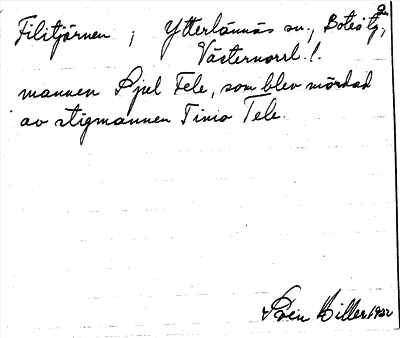 Filitjärnen ; Ytterlännäs sn., Boteå tg,
Västernorrl. l.
mannen Spel Fele, som blev mördad
av stigmannen Tinio Tele.
Sven Hiller 1932